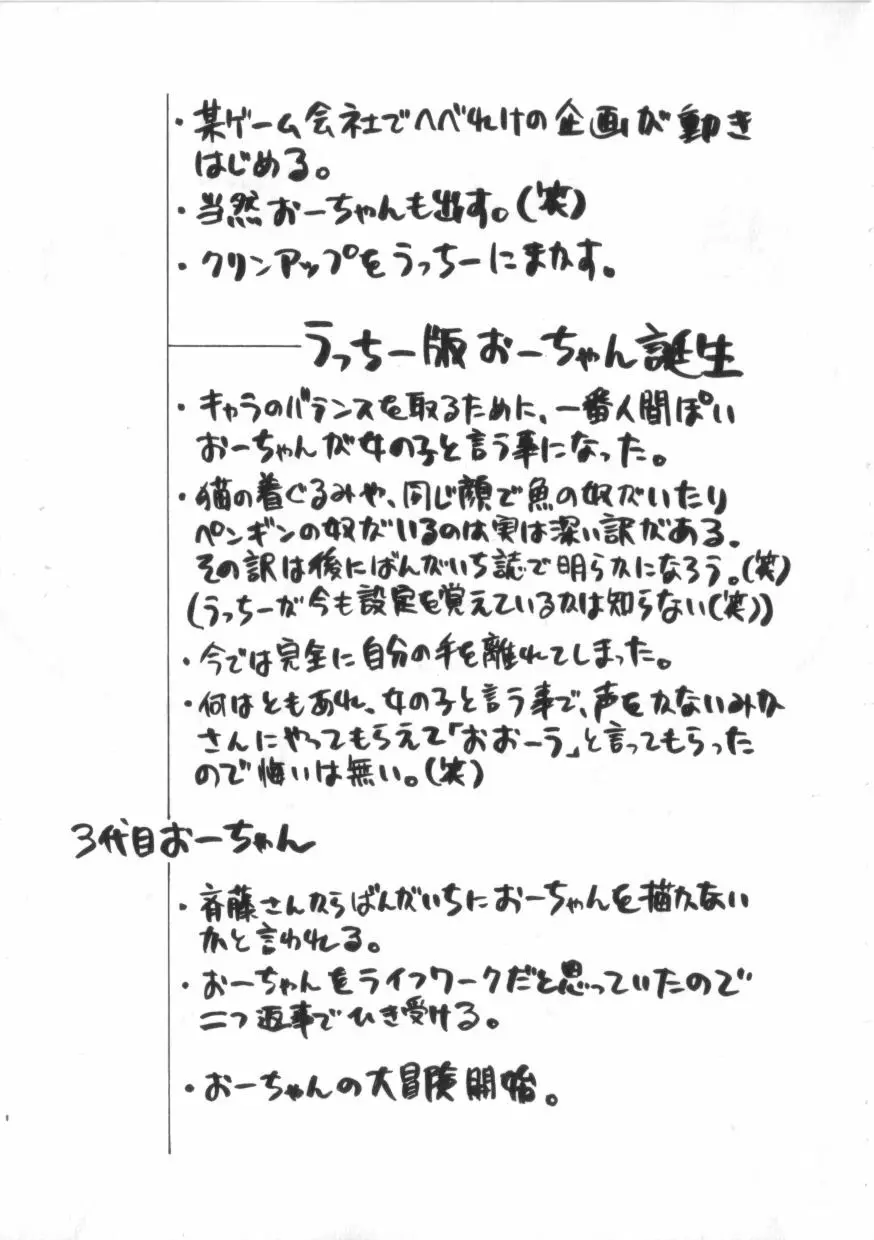 ・某ゲーム会社でへべれけの企画が動き
はじめる。
・当然おーちゃんも出す。(笑)
・クリンアップをうっちーにまかす。
うっちー版おーちゃん誕生
・キャラのバランスを取るために、一番人間ぽい
おーちゃんが女の子と言う事になった。
・猫の着ぐるみや、同じ顔で魚の奴がいたり
ペンギンの奴がいるのは実は深い訳がある。
その訳は後にばんがいち誌で明らかになろう。(笑)
(うっちーが今も設定を覚えているかは知らない(笑))
・今では完全に自分の手を離れてしまった。
・何はともあれ、女の子と言う事で、声をかないみか
さんにやってもらえて「おおーう」と言ってもらった
ので悔いは無い。(笑)
3代目おーちゃん
・斉藤さんからばんがいちにおーちゃんを描かない
かと言われる。
・おーちゃんをライフワークだと思っていたので
二つ返事でひき受ける。
・おーちゃんの大冒険開始。